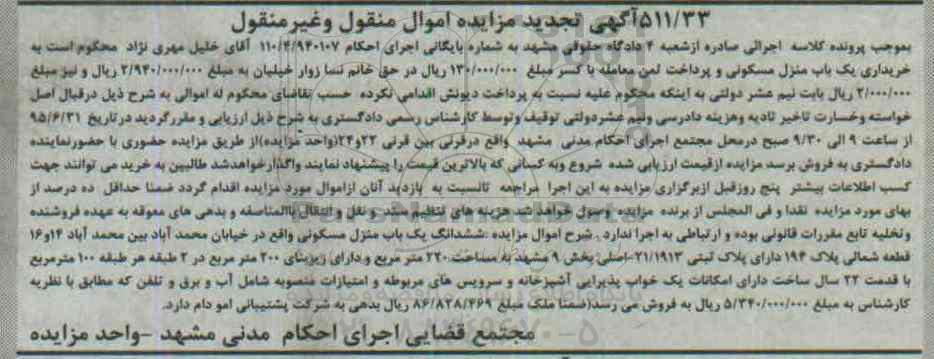 ۵۱۱/۳۳آگهی تجدید مزایده اموال منقول وغیرمنقول
بموجب پرونده کلاسه اجرائی صادره ازشعبه ۴ دادگاه حقوقی مشهد به شماره بایگانی اجرای احکام ۱۱۰/۴/۹۴۰۱۰۷ آقای خلیل مهری نژاد محکوم است به
خریداری یک باب منزل مسکونی و پرداخت ثمن معامله با کسر مبلغ ۱۳۰/۰۰۰/۰۰۰ ریال در حق خانم نسا زوار خیلیان به مبلغ ۲/۹۴۰/۰۰۰/۰۰۰ ریال و نیز مبلغ
۲/۰۰۰/۰۰۰ ریال بابت نیم عشر دولتی به اینکه محکوم علیه نسبت به پرداخت دیونش اقدامی نکرده حسب تقاضای محکوم له اموالی به شرح ذیل درقبال اصل
خواسته وخسارت تاخیر تادیه وهزینه دادرسی ونیم عشردولتی توقیف وتوسط کارشناس رسمی دادگستری به شرح ذیل ارزیابی و مقررگردید درتاریخ ۹۵/۶/۳۱
از ساعت ۹ الی ۹/۳۰ صبح درمحل مجتمع اجرای احکام مدنی مشهد واقع درقرنی بین قرنی ۲۲و۲۴(واحد مزایده)از طریق مزایده حضوری با حضورنماینده
دادگستری به فروش برسد مزایده ازقیمت ارزیابی شده شروع وبه کسانی که بالاترین قیمت را پیشنهاد نمایند واگذارخواهدشد طالبین به خرید می توانند جهت
کسب اطلاعات بیشتر پنج روزقبل ازبرگزاری مزایده به این اجرا مراجعه تانسبت به بازدید آنان ازاموال مورد مزایده اقدام گردد ضمنا حداقل ده درصد از
بهای مورد مزایده نقدا و فی المجلس از برنده مزایده وصول خواهد شد هزینه های تنظیم سند و نقل و انتقال باالمناصفه و بدهی های معوقه به عهده فروشنده
وتخلیه تابع مقررات قانونی بوده و ارتباطی به اجرا ندارد . شرح اموال مزایده :ششدانگ یک باب منزل مسکونی واقع در خیابان محمد آباد بین محمد آباد ۱۴و۱۶
قطعه شمالی پلاک ۱۹۴ دارای پلاک ثبتی ۲۱/۱۹۱۳-اصلی بخش ۹ مشهد به مساحت ۲۲۰ متر مربع و دارای زیربنای ۲۰۰ متر مربع در ۲ طبقه هر طبقه ۱۰۰ مترمربع
با قدمت ۲۲ سال ساخت دارای امکانات یک خواب پذیرایی آشپزخانه و سرویس های مربوطه و امتیازات منصوبه شامل آب و برق و تلفن که مطابق با نظریه
کارشناس به مبلغ ۵/۳۴۰/۰۰۰/۰۰۰ ریال به فروش می رسد(ضمنا ملک مبلغ ۸۶/۸۲۸/۴۶۹ ریال بدهی به شرکت پشتیبانی امو دام دارد.
مجتمع قضایی اجرای احکام مدنی مشهد -واحد مزایده